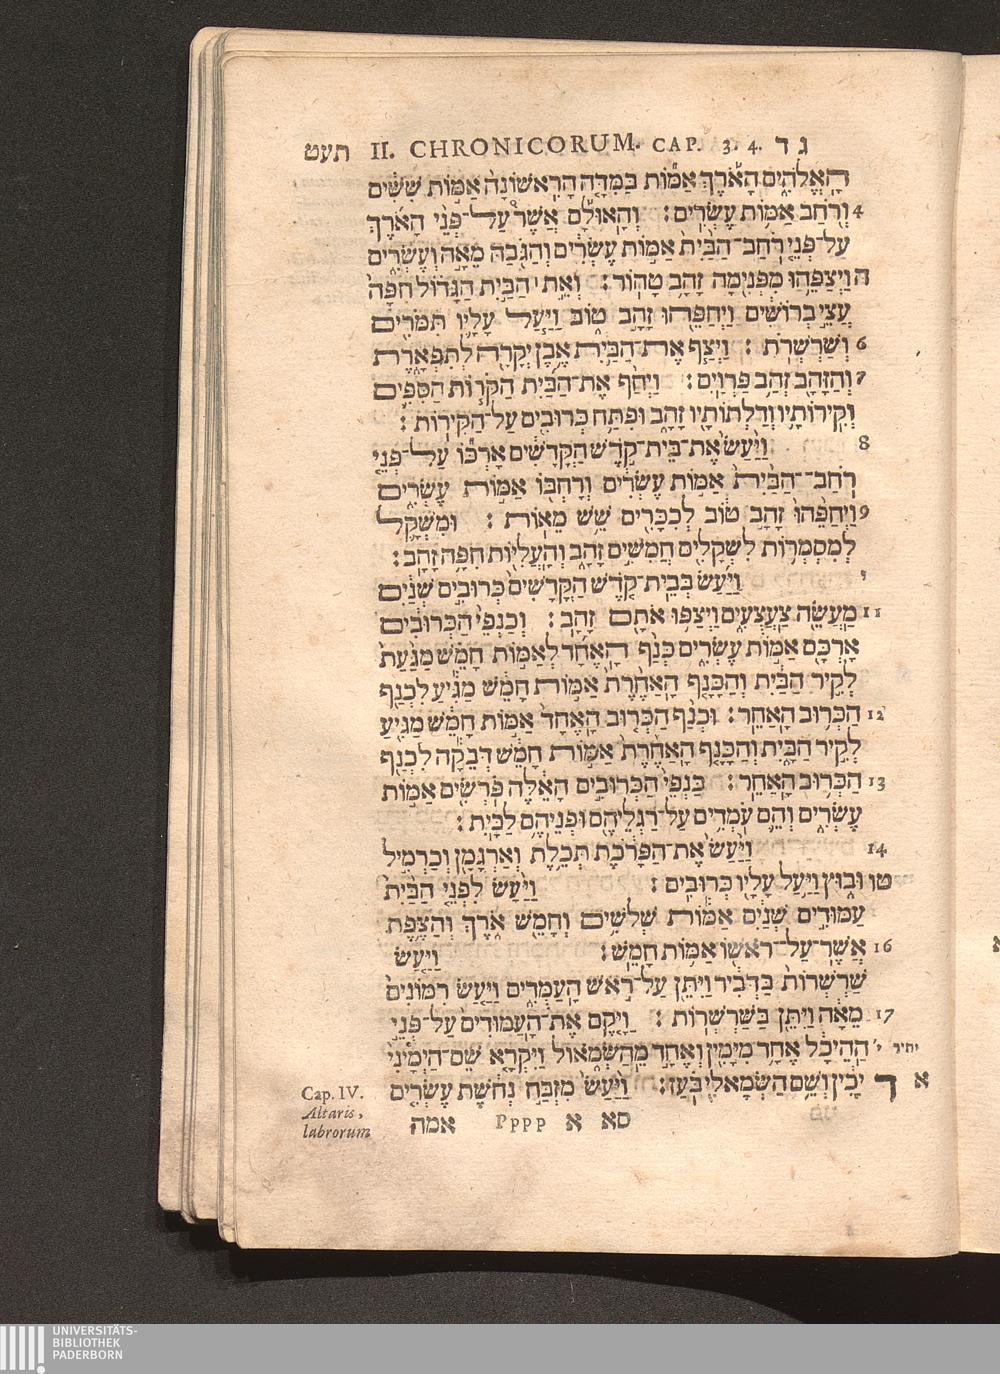 תעט II. CHRONICORUM. CAP. 3. 4. ג ד
הָאֱלֹהִ֑ים הָאֹ֡רֶךְ אַמּ֞וֹת בַּמִּדָּ֤ה הָרִֽאשׁוֹנָה֙ אַמּ֣וֹת שִׁשִּׁ֔ים
4 וְרֹ֖חַב אַמּ֥וֹת עֶשְׂרִֽים׃ וְהָאוּלָ֡ם אֲשֶׁר֩ עַל־פְּנֵ֨י הָאֹ֜רֶךְ
עַל־פְּנֵ֤י רֹֽחַב־הַבַּ֙יִת֙ אַמּ֣וֹת עֶשְׂרִ֔ים וְהַגֹּ֖בַהּ מֵאָ֣ה וְעֶשְׂרִ֑ים
ה וַיְצַפֵּ֥הוּ מִפְּנִ֖ימָה זָהָ֥ב טָהֽוֹר׃ וְאֵ֣ת׀ הַבַּ֣יִת הַגָּד֗וֹל חִפָּה֙
עֲצֵ֣י בְרוֹשִׁ֔ים וַיְחַפֵּ֖הוּ זָהָ֣ב ט֑וֹב וַיַּ֧עַל עָלָ֛יו תִּמֹרִ֖ים
6 וְשַׁרְשְׁרֹֽת׃ וַיְצַ֧ף אֶת־הַבַּ֛יִת אֶ֥בֶן יְקָרָ֖ה לְתִפְאָ֑רֶת
7 וְהַזָּהָ֖ב זְהַ֥ב פַּרְוָֽיִם׃ וַיְחַ֨ף אֶת־הַבַּ֜יִת הַקֹּר֧וֹת הַסִּפִּ֛ים
וְקִֽירוֹתָ֥יו וְדַלְתוֹתָ֖יו זָהָ֑ב וּפִתַּ֥ח כְּרוּבִ֖ים עַל־הַקִּירֽוֹת׃
8 וַיַּ֙עַשׂ֙ אֶת־בֵּֽית־קֹ֣דֶשׁ הַקֳּדָשִׁ֔ים אָרְכּ֞וֹ עַל־פְּנֵ֤י
רֹֽחַב־הַבַּ֙יִת֙ אַמּ֣וֹת עֶשְׂרִ֔ים וְרָחְבּ֖וֹ אַמּ֣וֹת עֶשְׂרִ֑ים
9 וַיְחַפֵּ֙הוּ֙ זָהָ֣ב ט֔וֹב לְכִכָּרִ֖ים שֵׁ֥שׁ מֵאֽוֹת׃ וּמִשְׁקָ֧ל
לְמִסְמְר֛וֹת לִשְׁקָלִ֖ים חֲמִשִּׁ֣ים זָהָ֑ב וְהָעֲלִיּ֖וֹת חִפָּ֥ה זָהָֽב׃
י וַיַּ֜עַשׂ בְּבֵֽית־קֹ֤דֶשׁ הַקֳּדָשִׁים֙ כְּרוּבִ֣ים שְׁנַ֔יִם
11 מַעֲשֵׂ֖ה צַעֲצֻעִ֑ים וַיְצַפּ֥וּ אֹתָ֖ם זָהָֽב׃ וְכַנְפֵי֙ הַכְּרוּבִ֔ים
אָרְכָּ֖ם אַמּ֣וֹת עֶשְׂרִ֑ים כְּנַ֨ף הָאֶחָ֜ד לְאַמּ֣וֹת חָמֵ֗שׁ מַגַּ֙עַת֙
לְקִ֣יר הַבַּ֔יִת וְהַכָּנָ֤ף הָאַחֶ֙רֶת֙ אַמּ֣וֹת חָמֵ֔שׁ מַגִּ֕יעַ לִכְנַ֖ף
12 הַכְּר֥וּב הָאַחֵֽר׃ וּכְנַ֨ף הַכְּר֤וּב הָאֶחָד֙ אַמּ֣וֹת חָמֵ֔שׁ מַגִּ֖יעַ
לְקִ֣יר הַבָּ֑יִת וְהַכָּנָ֤ף הָאַחֶ֙רֶת֙ אַמּ֣וֹת חָמֵ֔שׁ דְּבֵקָ֕ה לִכְנַ֖ף
13 הַכְּר֥וּב הָאַחֵֽר׃ כַּנְפֵי֙ הַכְּרוּבִ֣ים הָאֵ֔לֶּה פֹּרְשִׂ֖ים אַמּ֣וֹת
עֶשְׂרִ֑ים וְהֵ֛ם עֹמְדִ֥ים עַל־רַגְלֵיהֶ֖ם וּפְנֵיהֶ֥ם לַבָּֽיִת׃
14 וַיַּ֙עַשׂ֙ אֶת־הַפָּרֹ֔כֶת תְּכֵ֧לֶת וְאַרְגָּמָ֛ן וְכַרְמִ֖יל
טו וּב֑וּץ וַיַּ֥עַל עָלָ֖יו כְּרוּבִֽים׃ וַיַּ֜עַשׂ לִפְנֵ֤י הַבַּ֙יִת֙
עַמּוּדִ֣ים שְׁנַ֔יִם אַמּ֕וֹת שְׁלֹשִׁ֥ים וְחָמֵ֖שׁ אֹ֑רֶךְ וְהַצֶּ֥פֶת
16 אֲשֶׁר־עַל־רֹאשׁ֖וֹ אַמּ֥וֹת חָמֵֽשׁ׃ וַיַּ֤עַשׂ
שַׁרְשְׁרוֹת֙ בַּדְּבִ֔יר וַיִּתֵּ֖ן עַל־רֹ֣אשׁ הָעַמֻּדִ֑ים וַיַּ֤עַשׂ רִמּוֹנִים֙
17 מֵאָ֔ה וַיִּתֵּ֖ן בַּֽשַּׁרְשְׁרֽוֹת׃ וַיָּ֤קֶם אֶת־הָֽעַמּוּדִים֙ עַל־פְּנֵ֣י
יתיר י׳ הַהֵיכָ֔ל אֶחָ֥ד מִיָּמִ֖ין וְאֶחָ֣ד מֵֽהַשְּׂמֹ֑אול וַיִּקְרָ֤א שֵׁם־הַיְמִינִי֙
א ד יָכִ֔ין וְשֵׁ֥ם הַשְּׂמָאלִ֖י בֹּֽעַז׃ וַיַּ֙עַשׂ֙ מִזְבַּ֣ח נְחֹ֔שֶׁת עֶשְׂרִ֤ים
Cap. IV.
Altaris,
labrorum
סא א Pppp אמה
UNIVERSITÄTS-
BIBLIOTHEK
PADERBORN